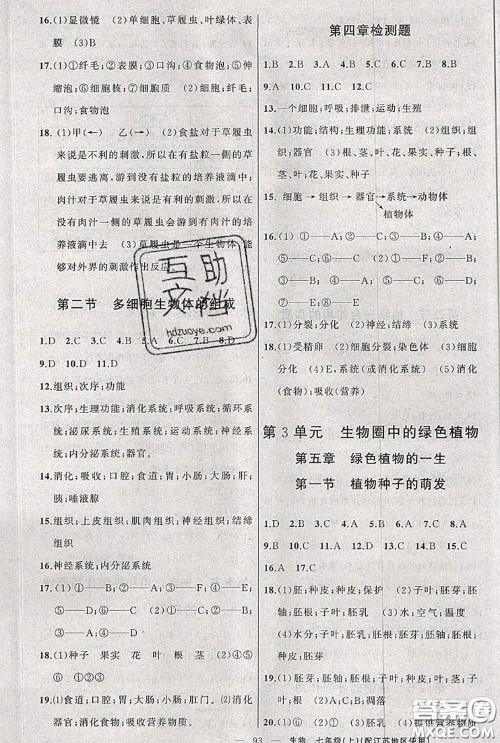 16.(1)显微镜 (2)单细胞、草履虫、叶绿体、表
膜 (3)B
17.(1)①纤毛;②表膜;③口沟;④食物泡;⑤伸
缩泡;⑥细胞核;⑦细胞质;⑧胞肛 (2)口沟
食物泡
18.(1)甲(←) 乙(→) (2)食盐对于草履虫
来说是不利的刺激,所以在有盐粒一侧的草履
虫要逃离,游到没有盐粒一侧的培养液滴中去;
肉汁对于草履虫来说是有利的刺激,所以在没
有肉汁一侧的草履虫会游到有肉汁一侧的培
养液滴中去 (3)草履虫是一个生物体 能
够对外界的刺激作出反应
第二节 多细胞生物体的组成
1.D 2.B 7.A 8.A
9.D 10.D 11.D
12.组织;次序;功能
13.次序;生理功能;消化系统;呼吸系统;循环系
统;泌尿系统;生殖系统;运动系统;神经系统;
内分泌系统;器官。
14.消化;吸收;口腔;食道;胃;小肠;大肠;肛门;肝
脏;胰;唾液腺
15.组织;上皮组织;肌肉组织;神经组织;结缔
组织
16.神经系统;内分泌系统
17.(1)①——A;②——B;③——F;④——E;
⑤——D;⑥——C
18.(1)种子 果实 花 叶 根 茎 (2)①——
D;②——F;③——A;④——E;⑤——C;
⑥——B
19.(1)口腔;胃;小肠;肛门。 (2)消化食物;吸
收营养 (3)消化;吸收营养物质
第四章检测题
1.B 2.A 3.B 4.C 5.B 6.C 7.D 8.D
9.A 10.C 11.D 12.C
13.一个细胞;呼吸;排泄;运动;生殖
14.(1)功能;结构;生理功能;系统 (2)组织;组
织;器官 (3)根、茎、叶、花、果实、种子;根、
茎、叶;花、果实、种子
15.细胞→组织→器官→系统→动物体
植物体
16.(1)①——A;②——D;③——C;④——B
(2)①——C;②——D;③——A;④——B;
⑤——E
17.(1)分裂;分化 (2)神经;结缔 (3)运动
18.(1)受精卵 (2)细胞分裂;染色体 (3)细胞
分化 (4)E;系统(或消化系统) (5)消化
(食物);吸收(营养)
第3单元 生物圈中的绿色植物
第五章 绿色植物的一生
第一节 植物种子的萌发
1.D 2.B 3.A 4.C 5.D 6.A 7.D 8.D
9.B 10.C 11.C 12.B 13.C 14.B 15.A
16.D 17.A
18.(1)胚;种皮;种皮;保护 (2)子叶;胚芽;胚
轴;胚根;胚乳 (3)水;空气;温度
(4)水分
19.(1)胚芽;胚轴;胚根;子叶;种皮 (2)胚;胚
芽;子叶;胚根;胚轴 (3)子叶;胚乳
20.(1)④;子叶 (2)胚乳;提供营养物质
93 生物 七年级(上)(配江苏地区使用)
互助
文档
hdzuoye.com